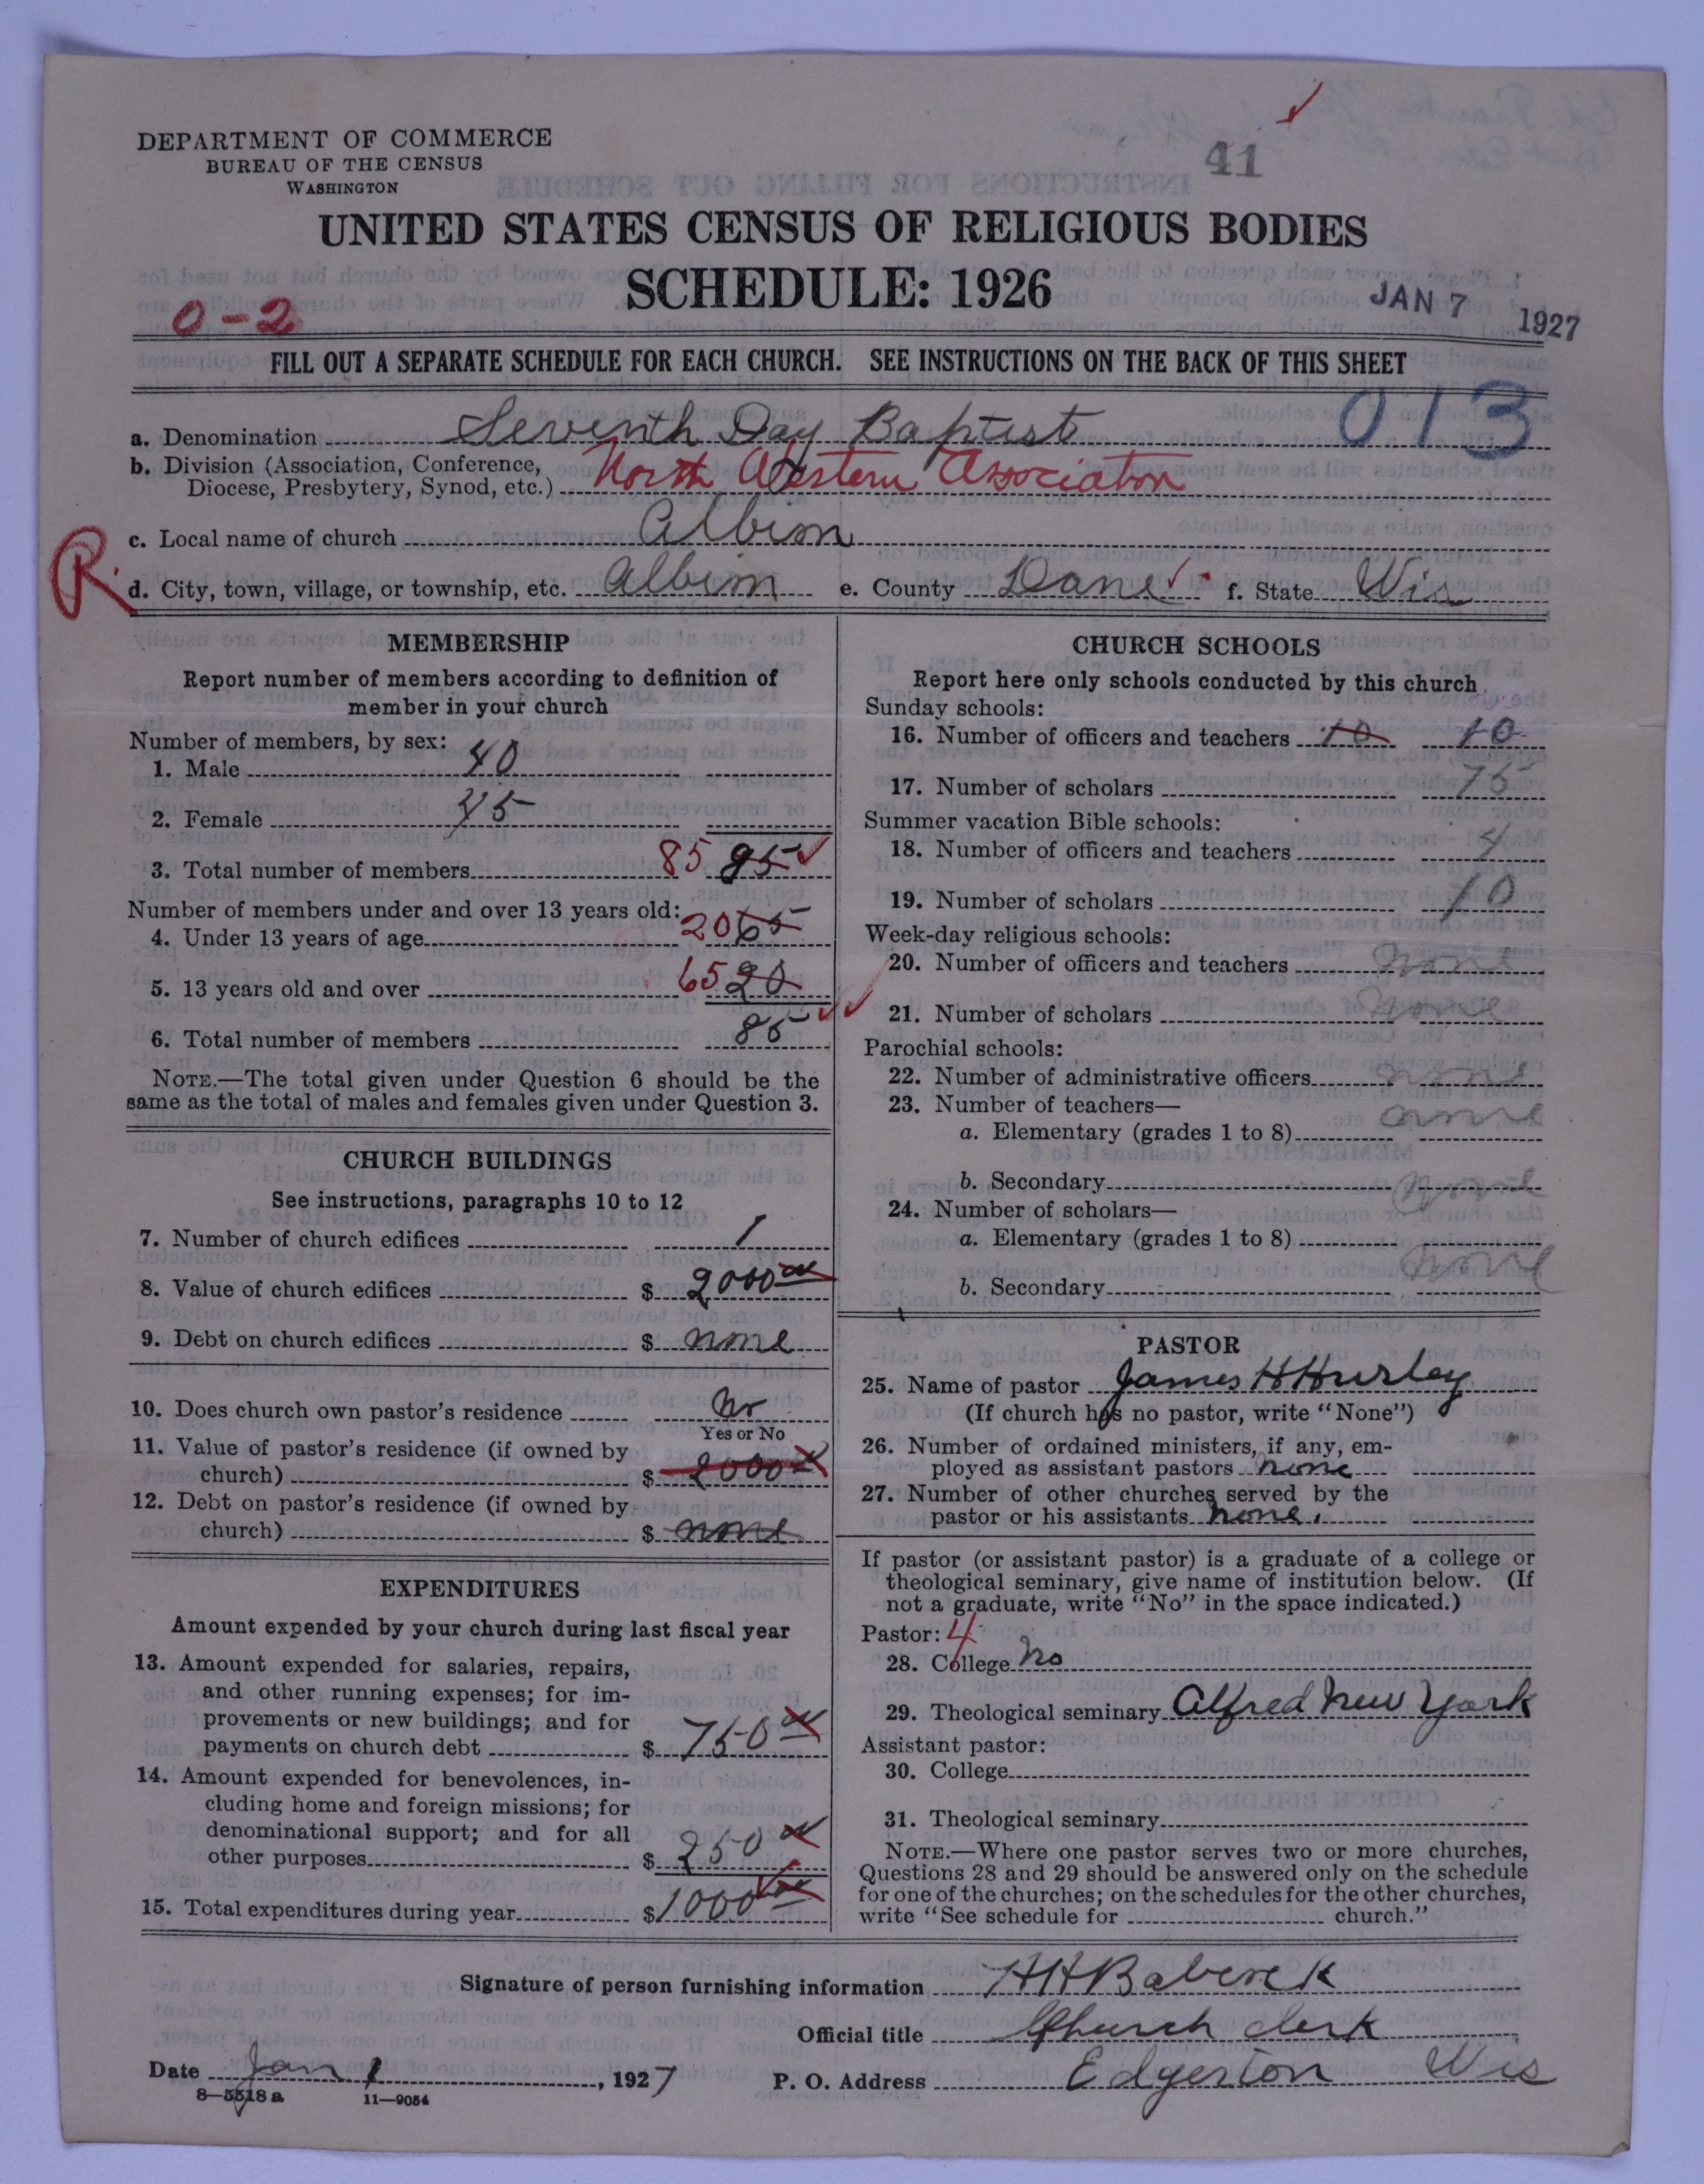 41
DEPARTMENT OF COMMERCE
BUREAU OF THE CENSUS
WASHINGTON
UNITED STATES CENSUS OF RELIGIOUS BODIES
SCHEDULE: 1926
JAN 7 1927
0-2
FILL OUT A SEPARATE SCHEDULE FOR EACH CHURCH. SEE INSTRUCTIONS ON THE BACK OF THIS SHEET
013
a. Denomination Seventh Day Baptist
b. Division (Association, Conference,
Diocese, Presbytery, Synod, etc.) North Western Association
c. Local name of church Albion
R.
d. City, town, village, or township, etc. Albion e. County Dane f. State Wis
MEMBERSHIP
Report number of members according to definition of
member in your church
Number of members, by sex:
1. Male 40
2. Female 45
3. Total number of members 85 95
Number of members under and over 13 years old:
4. Under 13 years of age 20 65
5. 13 years old and over 65 20
6. Total number of members 85
NOTE.—The total given under Question 6 should be the
same as the total of males and females given under Question 3.
CHURCH BUILDINGS
See instructions, paragraphs 10 to 12
7. Number of church edifices 1
8. Value of church edifices $ 2000 00
9. Debt on church edifices $ none
10. Does church own pastor's residence No
Yes or No
11. Value of pastor's residence (if owned by
church) $ 2000
12. Debt on pastor's residence (if owned by
church) $ none
EXPENDITURES
Amount expended by your church during last fiscal year
13. Amount expended for salaries, repairs,
and other running expenses; for im-
provements or new buildings; and for
payments on church debt $ 750 00
14. Amount expended for benevolences, in-
cluding home and foreign missions; for
denominational support; and for all
other purposes $ 250 00
15. Total expenditures during year $ 1000 00
CHURCH SCHOOLS
Report here only schools conducted by this church
Sunday schools:
16. Number of officers and teachers 10 10
17. Number of scholars 75
Summer vacation Bible schools:
18. Number of officers and teachers 4
19. Number of scholars 10
Week-day religious schools:
20. Number of officers and teachers none
21. Number of scholars none
Parochial schools:
22. Number of administrative officers none
23. Number of teachers—
a. Elementary (grades 1 to 8) none
b. Secondary none
24. Number of scholars—
a. Elementary (grades 1 to 8)
none
b. Secondary
PASTOR
25. Name of pastor James H Hurley
(If church has no pastor, write "None")
26. Number of ordained ministers, if any, em-
ployed as assistant pastors none
27. Number of other churches served by the
pastor or his assistants none.
If pastor (or assistant pastor) is a graduate of a college or
theological seminary, give name of institution below. (If
not a graduate, write "No" in the space indicated.)
Pastor: 4
28. College No
29. Theological seminary Alfred New York
Assistant pastor:
30. College
31. Theological seminary
NOTE.—Where one pastor serves two or more churches,
Questions 28 and 29 should be answered only on the schedule
for one of the churches; on the schedules for the other churches,
write "See schedule for church."
Signature of person furnishing information H H Babcock
Official title Church clerk
Date Jan 1, 1927 P. O. Address Edgerton Wis
8—5518 a 11—9054